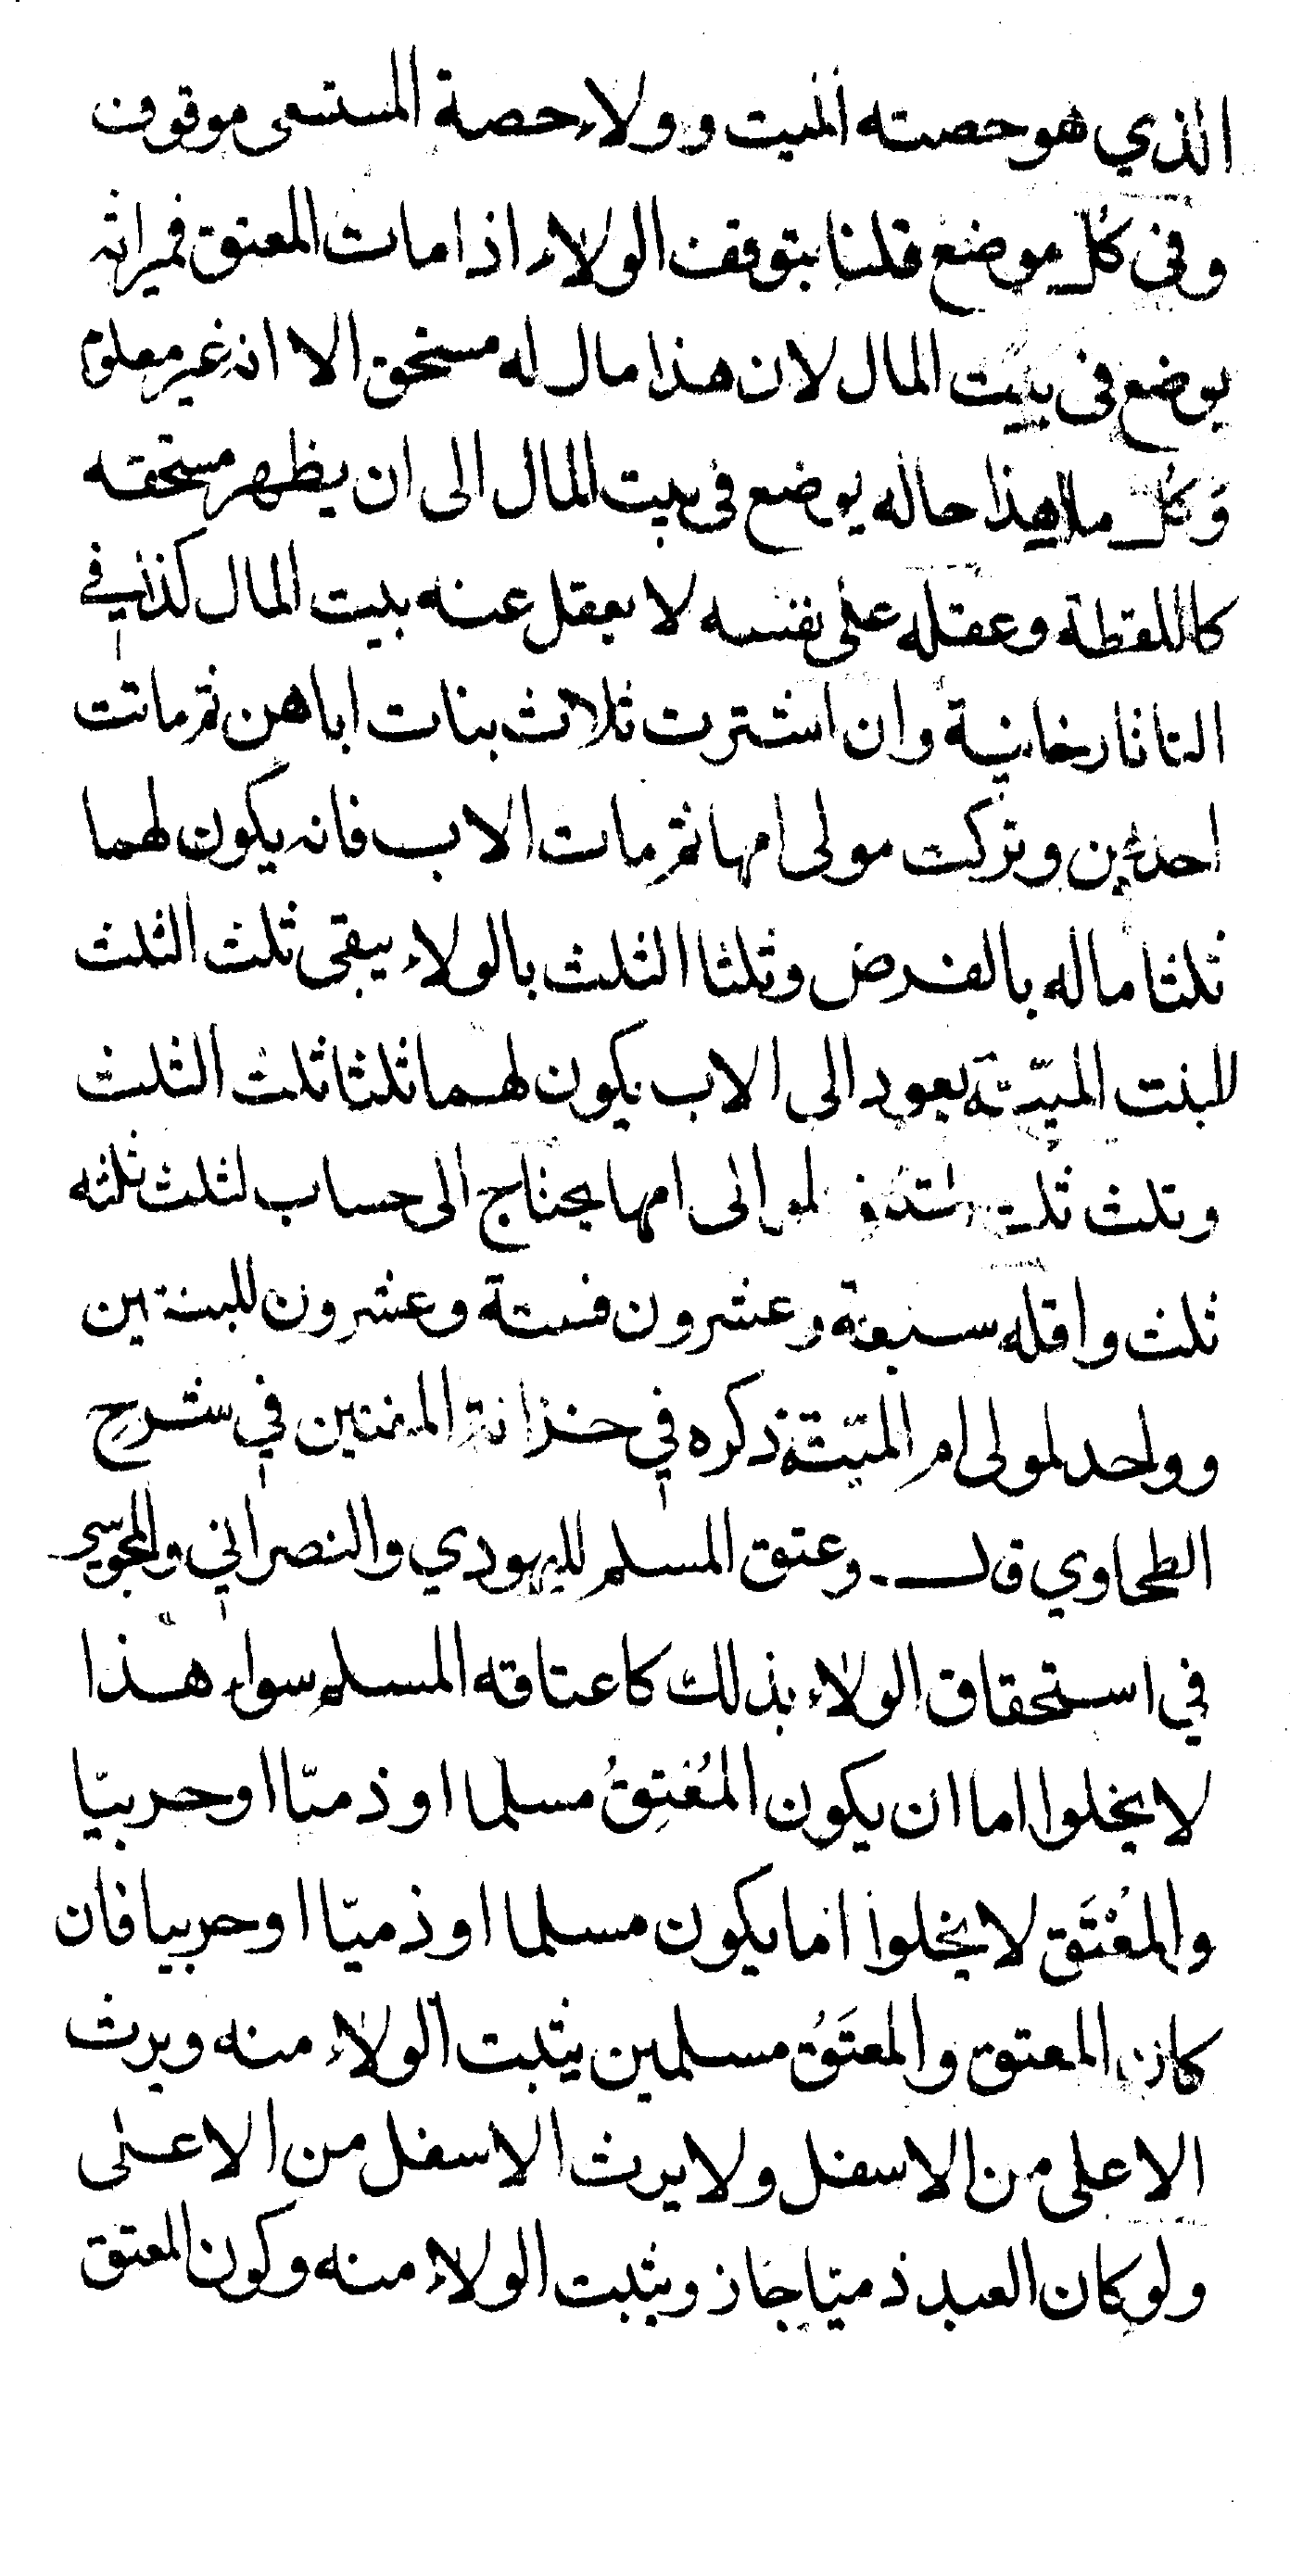 الذي هو حصته الميت وولاء حصة المستسعى موقوف
وفي كل موضع قلنا بتوقف الولاء اذا مات المعتق فميراثه
يوضع في بيت المال لان هذا مال له مستحق الا انه غير معلوم
وكل ما هذا حاله يوضع في بيت المال الى ان يظهر مستحقه
كاللقطة وعقله على نفسه لا يعقل عنه بيت المال كذا في
التاتارخانية وان اشترت ثلاث بنات اباهن ثم ماتت
احديهن وتركت مولى امها ثم مات الاب فانه يكون لهما
ثلثا ماله بالفرض وثلثا الثلث بالولاء يبقى ثلث الثلث
للبنت الميتة يعود الى الاب يكون لهما ثلثا ثلث الثلث
وثلث ثلث لموالى امها يحتاج الى حساب لثلث ثلثه
ثلث واقله سبعة وعشرون فستة وعشرون للبنتين
وواحد لمولى ام الميتة ذكره في خزانة المفتين في شرح
الطحاوي قال وعتق المسلم لليهودي والنصراني والمجوسي
في استحقاق الولاء بذلك كاعتاقه المسلم سواء هذا
لا يخلوا اما ان يكون المُعْتِقُ مسلما او ذميّا او حربيّا
والمُعْتَق لا يخلوا اما يكون مسلما او ذميّا او حربيا فان
كان المعتق والمعتَقُ مسلمين يثبت الولاء منه ويرث
الاعلى من الاسفل ولا يرث الاسفل من الاعلى
ولو كان العبد ذميّا جاز ويثبت الولاء منه وكون المعتق